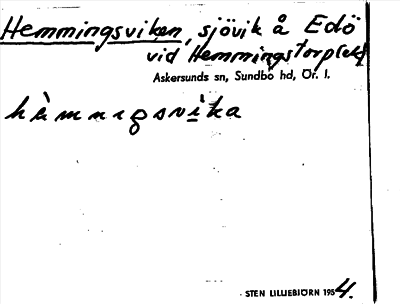 Hemmingsviken, sjövik å Edö
vid Hemmingstorp
Askersunds sn, Sundbo hd, Ör. l.
hèmnıgsvìka
STEN LILLIEBJÖRN 1954.